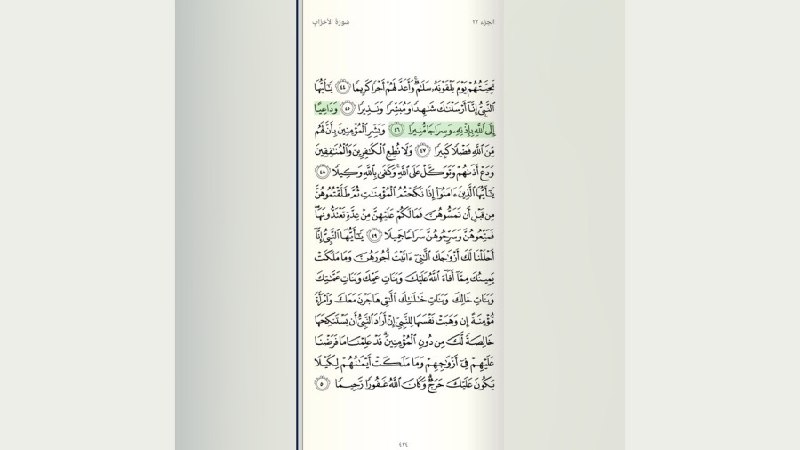 الجزء ٢٢
سورة الأحزاب
تَحِيَّتُهُمْ يَوْمَ يَلْقَوْنَهُ سَلَامٌ وَأَعَدَّ لَهُمْ أَجْرًا كَرِيمًا ٤٤ يَا أَيُّهَا
النَّبِيُّ إِنَّا أَرْسَلْنَاكَ شَاهِدًا وَمُبَشِّرًا وَنَذِيرًا ٤٥ وَدَاعِيًا
إِلَى اللَّهِ بِإِذْنِهِ وَسِرَاجًا مُّنِيرًا ٤٦ وَبَشِّرِ الْمُؤْمِنِينَ بِأَنَّ لَهُم
مِّنَ اللَّهِ فَضْلًا كَبِيرًا ٤٧ وَلَا تُطِعِ الْكَافِرِينَ وَالْمُنَافِقِينَ
وَدَعْ أَذَاهُمْ وَتَوَكَّلْ عَلَى اللَّهِ وَكَفَى بِاللَّهِ وَكِيلًا ٤٨
يَا أَيُّهَا الَّذِينَ آمَنُوا إِذَا نَكَحْتُمُ الْمُؤْمِنَاتِ ثُمَّ طَلَّقْتُمُوهُنَّ
مِن قَبْلِ أَن تَمَسُّوهُنَّ فَمَا لَكُمْ عَلَيْهِنَّ مِنْ عِدَّةٍ تَعْتَدُّونَهَا
فَمَتِّعُوهُنَّ وَسَرِّحُوهُنَّ سَرَاحًا جَمِيلًا ٤٩ يَا أَيُّهَا النَّبِيُّ إِنَّا
أَحْلَلْنَا لَكَ أَزْوَاجَكَ اللَّاتِي آتَيْتَ أُجُورَهُنَّ وَمَا مَلَكَتْ
يَمِينُكَ مِمَّا أَفَاءَ اللَّهُ عَلَيْكَ وَبَنَاتِ عَمِّكَ وَبَنَاتِ عَمَّاتِكَ
وَبَنَاتِ خَالِكَ وَبَنَاتِ خَالَاتِكَ اللَّاتِي هَاجَرْنَ مَعَكَ وَامْرَأَةً
مُّؤْمِنَةً إِن وَهَبَتْ نَفْسَهَا لِلنَّبِيِّ إِنْ أَرَادَ النَّبِيُّ أَن يَسْتَنكِحَهَا
خَالِصَةً لَّكَ مِن دُونِ الْمُؤْمِنِينَ قَدْ عَلِمْنَا مَا فَرَضْنَا
عَلَيْهِمْ فِي أَزْوَاجِهِمْ وَمَا مَلَكَتْ أَيْمَانُهُمْ لِكَيْلَا
يَكُونَ عَلَيْكَ حَرَجٌ وَكَانَ اللَّهُ غَفُورًا رَّحِيمًا ٥٠
٤٢٤